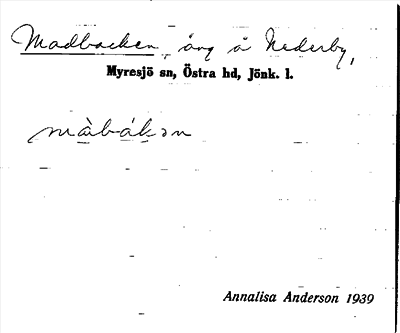 Madbacken, äng å Nederby,
Myresjö sn, Östra hd, Jönk. l.
màbákən
Annalisa Anderson 1939